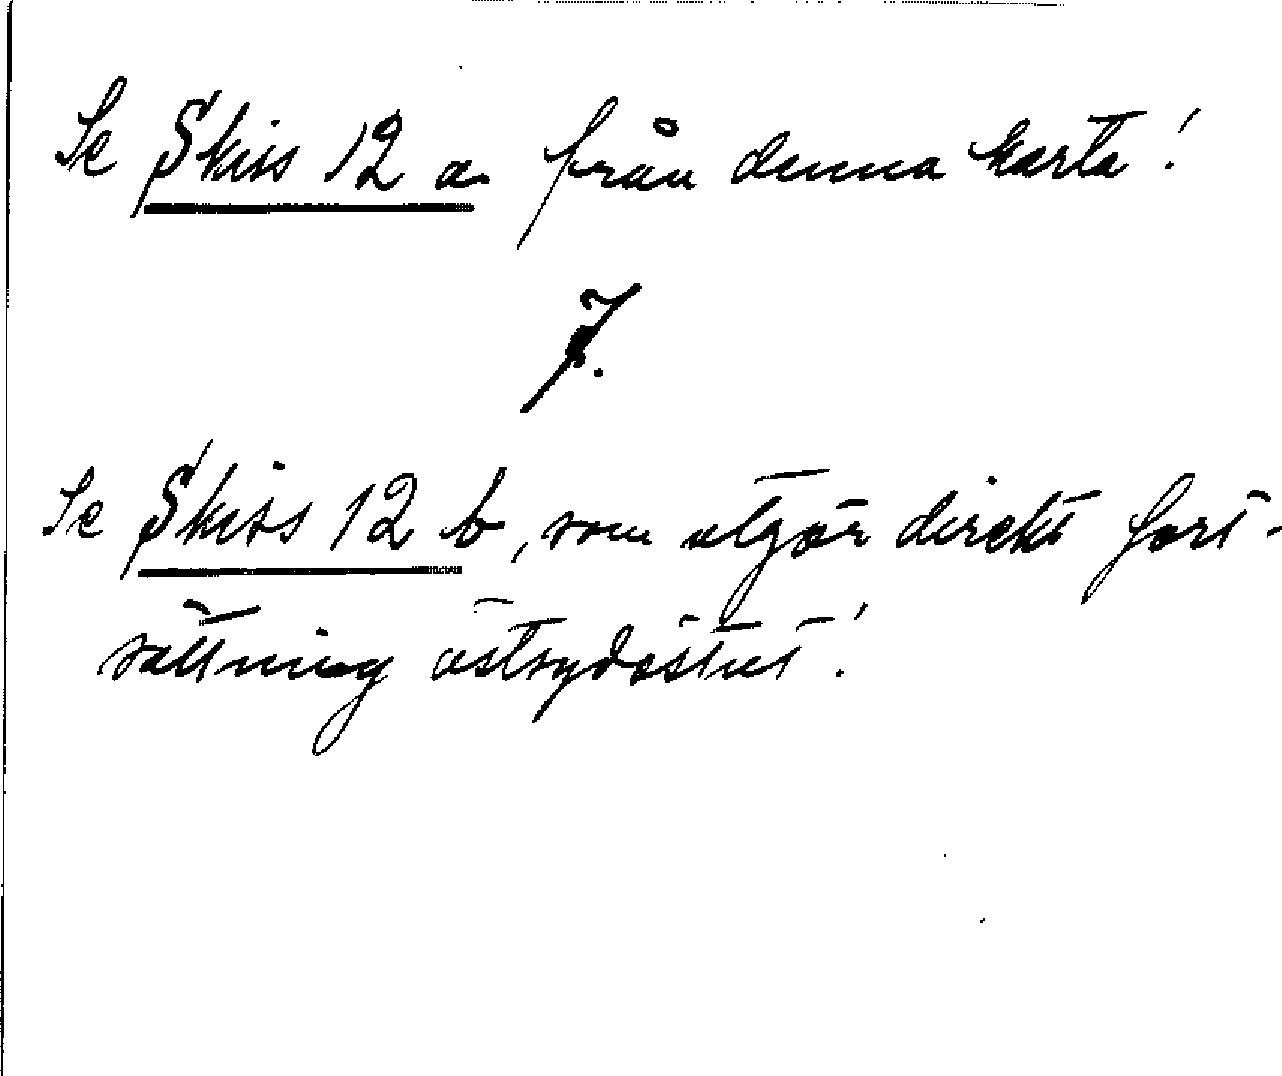 Se Skiss 12 a från denna karta!
7.
Se Skiss 12 b, som utgör direkt fort-
sättning östsydöstut!